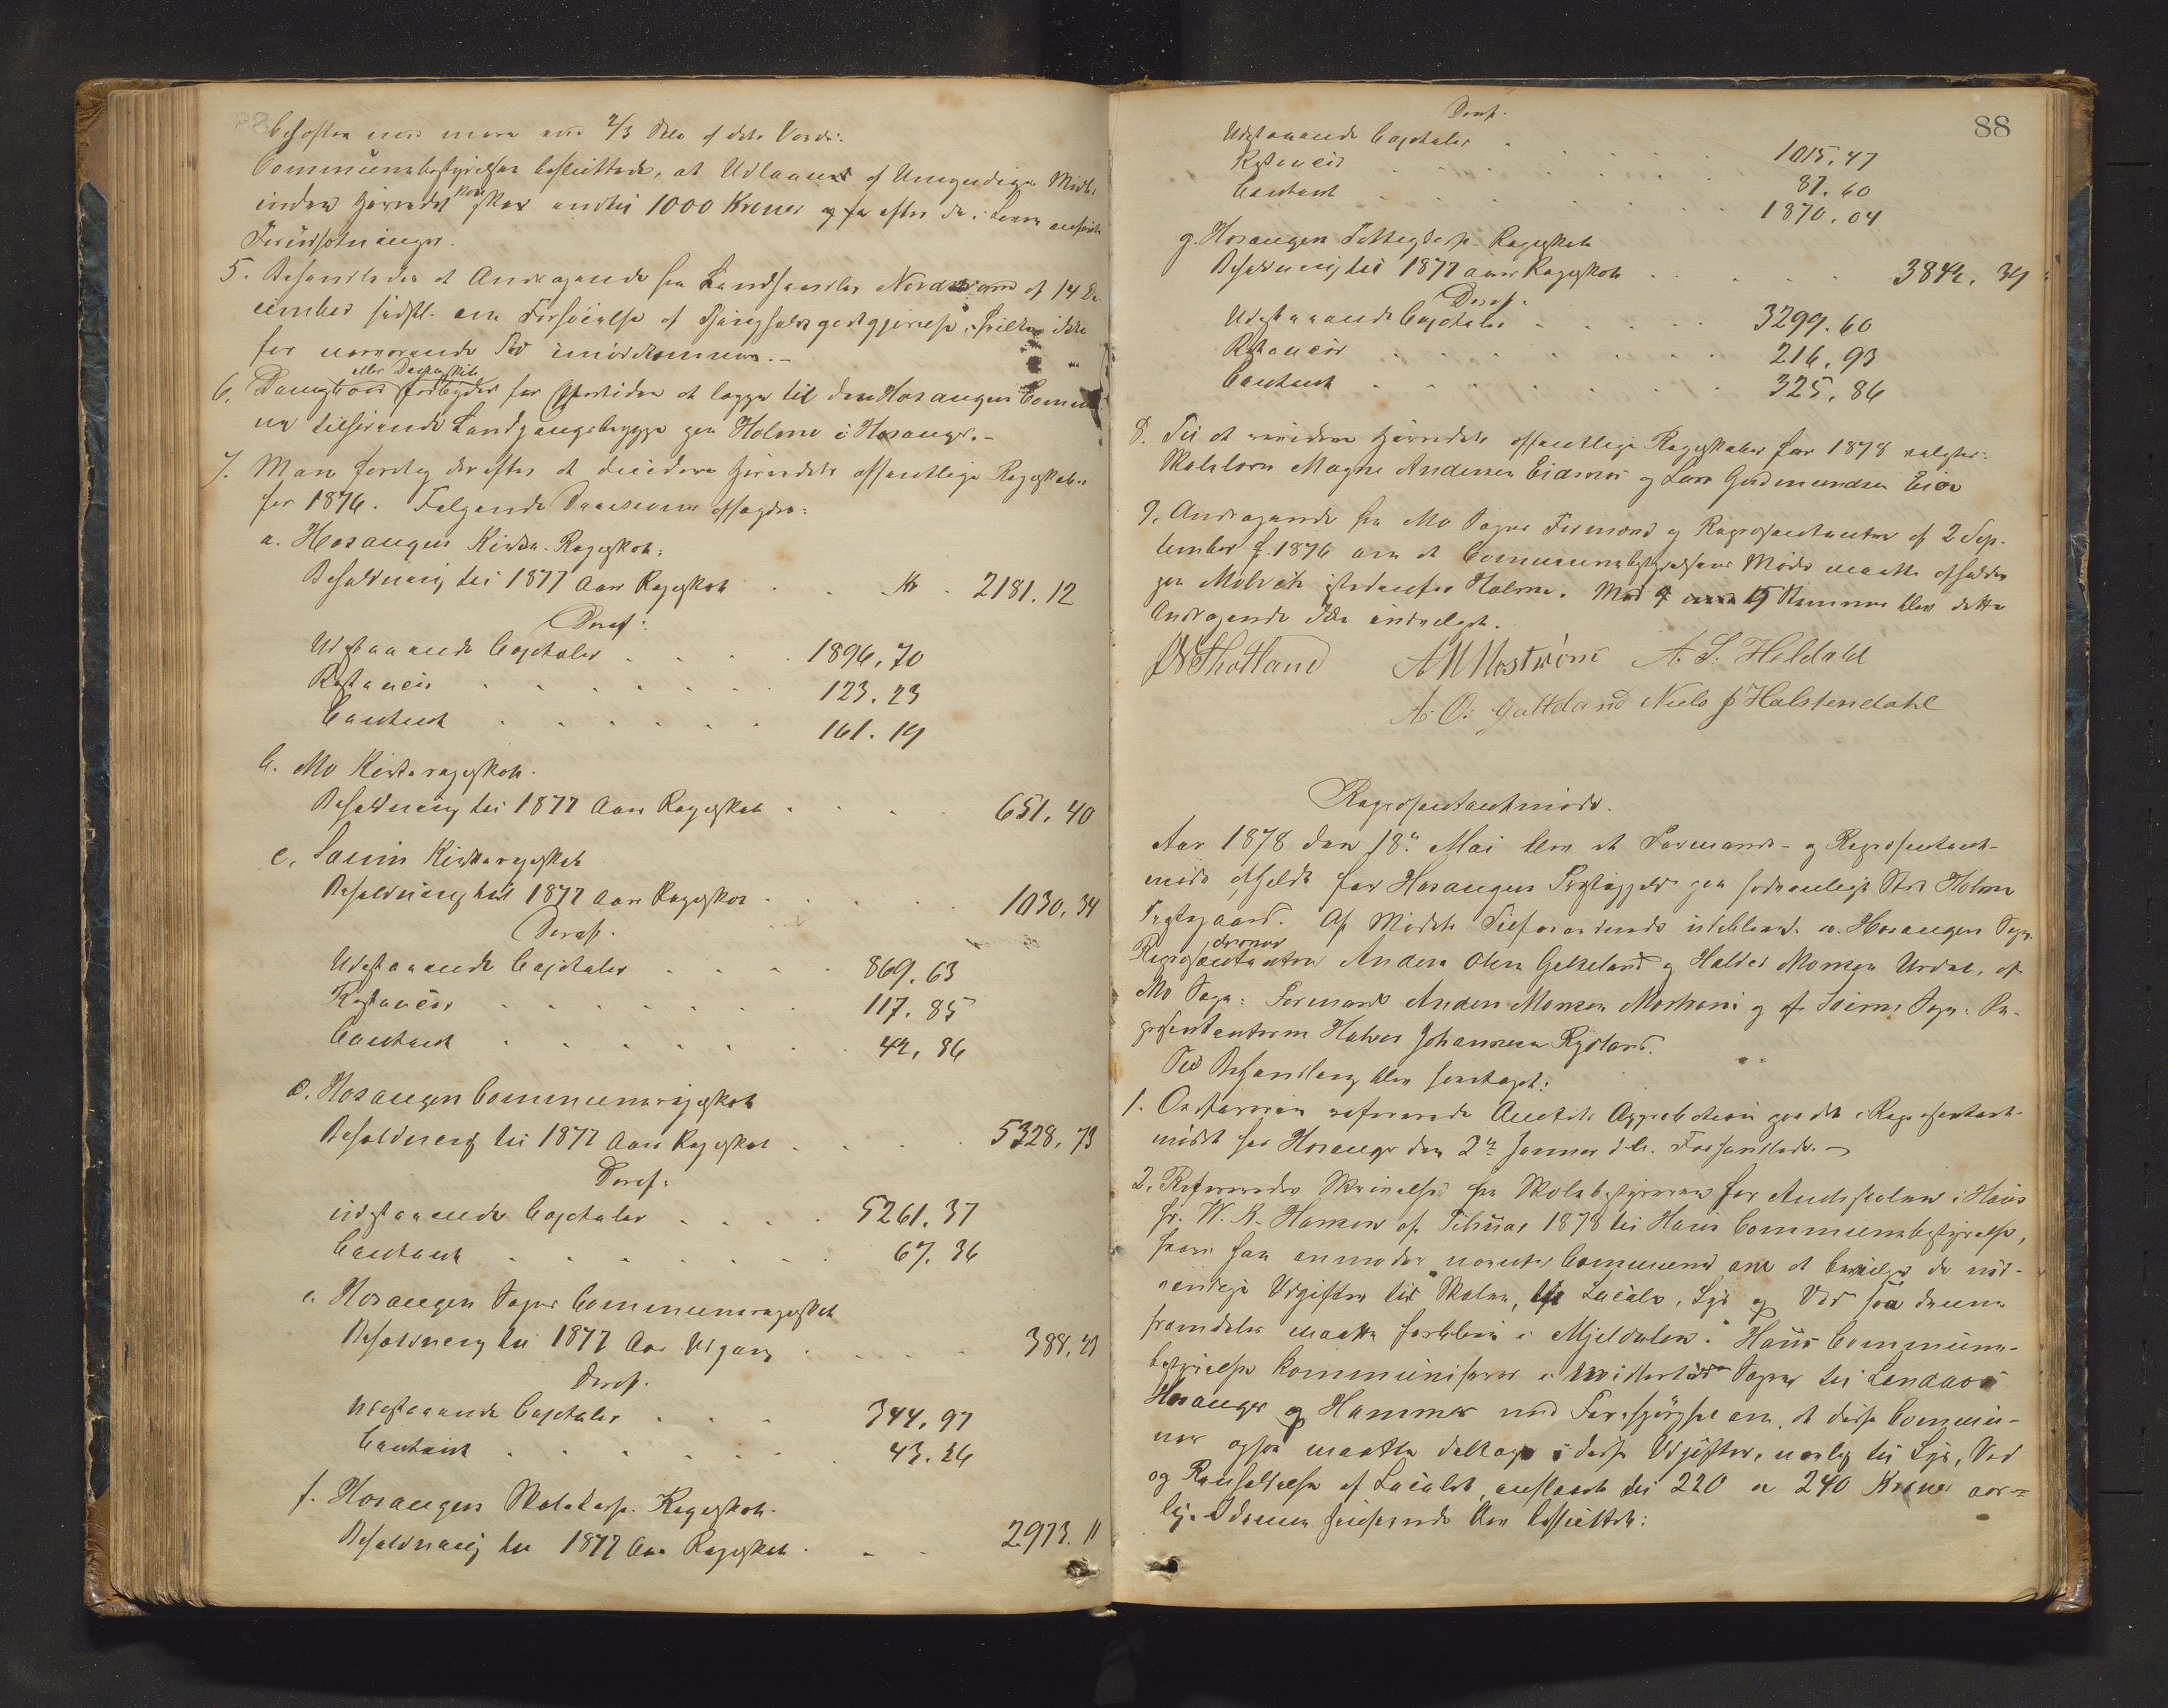 behøftes med mere end 2/3 Dele af dets Værdi.
Communebestyrelsen besluttede, at Udlaanet af Umyndiges Midler
inden Herredet kan skee indtil 1000 Kroner og efter de i Loven anførte
Forudsætninger.
5. Behandledes et Andragende fra Landhandler Nordström af 14 De-
cember sidstl. om Forhøielse af Skydsgodtgjørelse, hvilken ikke
for nærværende Tid imødekommes.-
6. Dampbaad eller Dampskib forbydes for Fremtiden at lægge til den Hosanger Commu-
ne tilhørende Landgangsbrygge paa Holme i Hosanger.-
7. Man foretog derefter at decidere Herredets offentlige Regnskaber
for 1876. Følgende Decisioner afsagdes:
a. Hosanger Kirke-Regnskab:
Beholdning til 1877 Aars Regnskab . . Kr. 2181.12
Deraf:
Udestaaende Capitaler . . . . 1896.70
Restancer . . . . . . 123.23
Contant . . . . . . 161.19
b. Mo Kirkeregnskab.
Beholdning til 1877 Aars Regnskab . . . 651.40
c. Sæim Kirkeregnskab
Beholdning til 1877 Aars Regnskab . . . . 1030.34
Deraf.
Udestaaende Capitaler . . . . 869.63
Restancer . . . . . . 117.85
Contant . . . . . . 42.86
d. Hosanger Communeregnskab
Beholdning til 1877 Aars Regnskab . . . 5328.73
Deraf:
udestaaende Capitaler . . . . 5261.37
Contant . . . . . . 67.36
e. Hosanger Sogns Communeregnskab
Beholdning til 1877 Aars Udgang . . . . 388.23
Deraf.
Udestaaende Capitaler . . . 344.97
Contant . . . . . 43.26
f. Hosangers Skolekasse-Regnskab.
Beholdning til 1877 Aars Regnskab . . . 2973.11
88
Deraf.
Udestaaende Capitaler . . . . . 1015.47
Restancer . . . . . . 87.60
Contant . . . . . . 1870.04
g. Hosanger Fattigkasse-Regnskab
Beholdning til 1877 Aars Regnskab . . . . 3842.39
Deraf.
Udestaaende Capitaler . . . . . 3299.60
Restancer . . . . . . 216.93
Contant . . . . . . 325.86
8. Til at revidere Herredets offentlige Regnskaber for 1878 valgtes:
Skolelærer Magne Andersen Eidsnes og Lars Gudmundsen Eide
9. Andragende fra Mo Sogns Formænd og Repræsentanter af 2 Sep-
tember f. 1876 om at Communebestyrelsens Møder maatte afholdes
paa Molvik istedenfor Holme. Med 15 Stemmer blev dette
Andragende ikke indvilget.
A. S. Heldahl
A. O. Gattland Niels J Halstendahl
Repræsentantmøde.
Aar 1878 den 18de Mai blev et Formands- og Repræsentant-
møde afholdt for Hosanger Præstegjeld paa sædvanlige Sted Holme
Præstegaard. Af Mødets Tilforordnede udebleve. a. Hosanger Sogn.
Repræsentanterne Anders Olsen Gelteland og Halvor Monsen Urdal, af
Mo Sogn: Formand Anders Monsen og af Sæims Sogn: Re-
præsentanterne Halvor Johannesen Rydland.
Til Behandling blev foretaget:
1. Ordføreren refererede Amtets Approbation paa det i Repræsentant-
mødet for Hosanger den 2de Januar d.A. Forhandlede.-
2. Refereredes Skrivelse fra Skolebestyreren for Amtsskolen i Haus
hr. W. K. Hansen af Februar 1878 til Haus Communebestyrelse,
hvori han anmoder nævnte Commune om at bevilge de nød-
vendige Udgifter til Skolen, til Locale, Lys og Ved saa denne
fremdeles maatte forblive i Mjeldalen. Haus Commune-
bestyrelse kommuniserer i Sagen til Lindaas
Hosanger og Hammer med Forespørgsel om, at disse Commu-
ner ogsaa maatte deltage i disse Udgifter, nemlig til Lys, Ved
og Renholdelse af Localet, anslaaet til 220 a 240 Kroner aar-
lig. I denne Henseende blev besluttet: